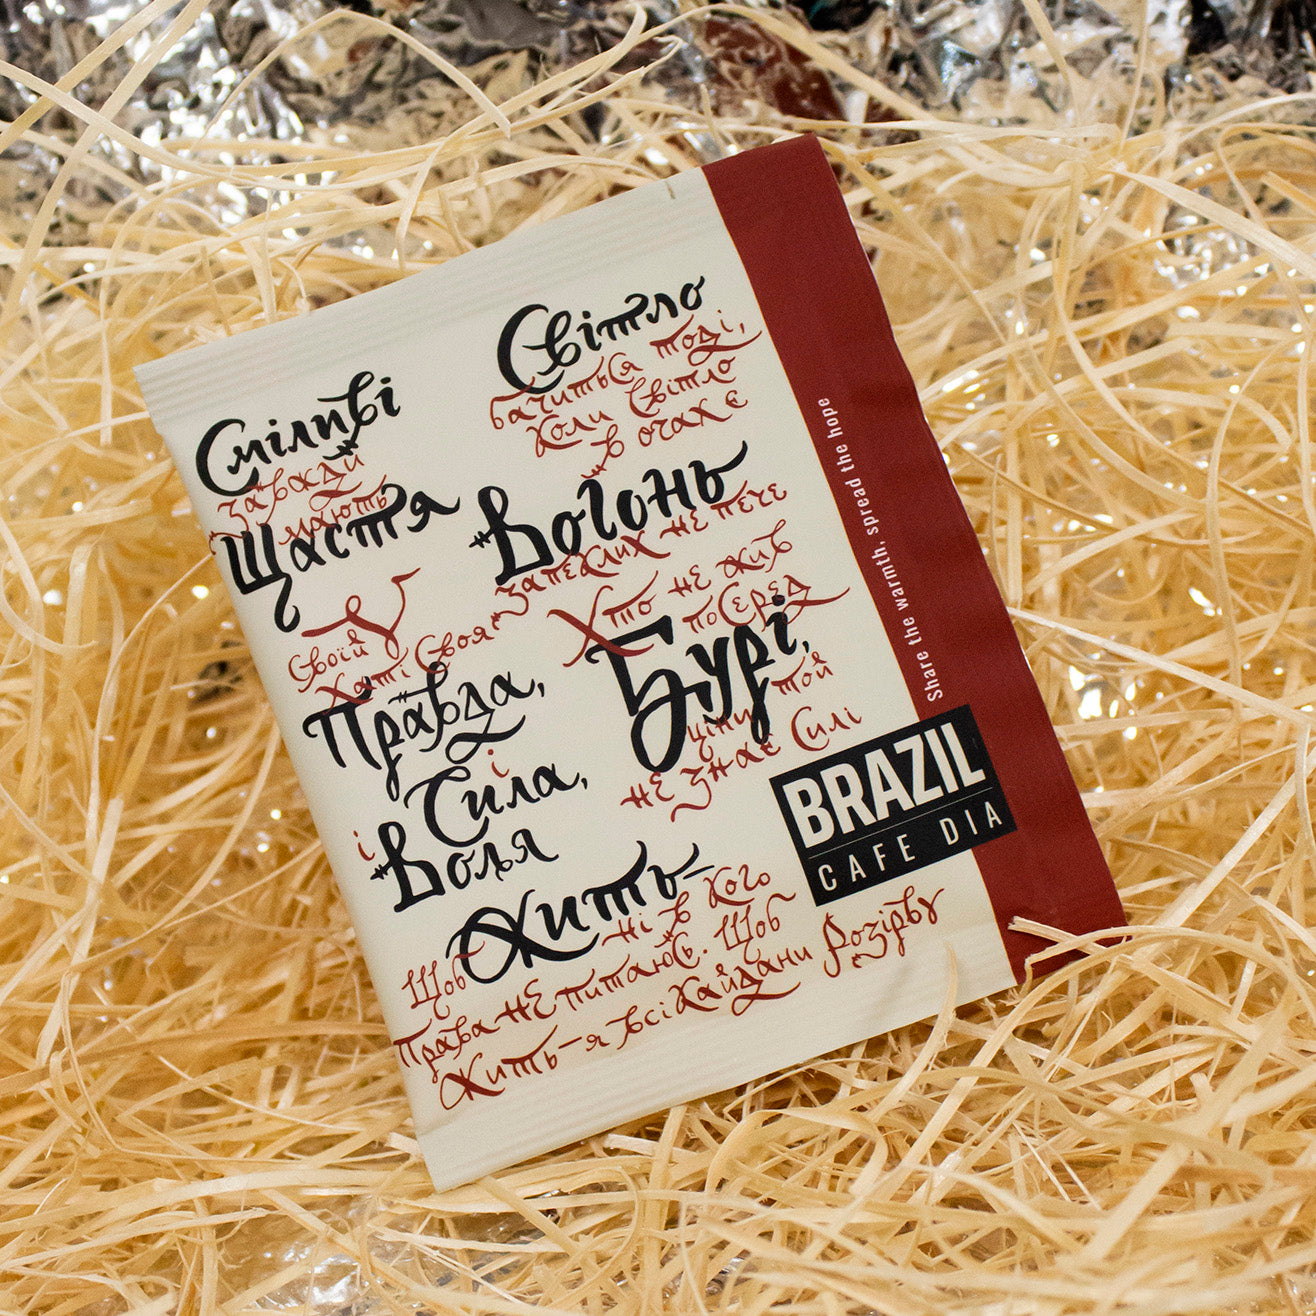 Сміливі
завжди
мають
Щастя
У
своїй
Хаті Своя
Правда,
і
Сила,
і Воля
Світло
бачиться тоді,
коли Світло
в очах є
Вогонь
запеклих не пече
Хто не жив
посеред
Бурі,
той
ціни
не знає Силі
Жить–
Щоб ні в кого
Права не питаюсь. Щоб
Жить–я всі кайдани розірву
Share the warmth, spread the hope
BRAZIL
CAFE DIA